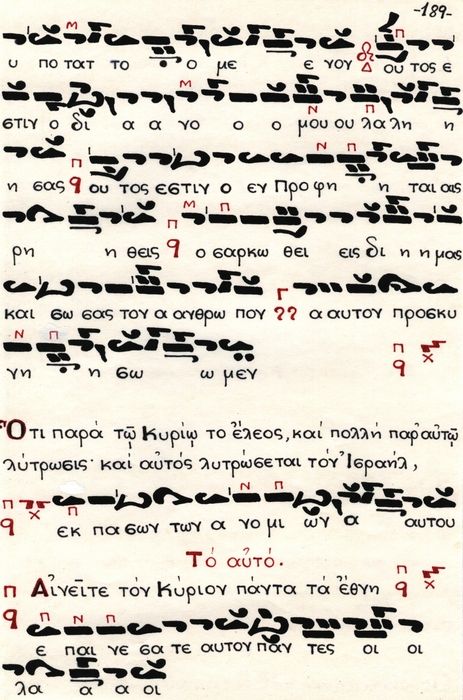 -189-
υ ποτατ το ο με ε νον ου τος ε
στιν ο δι α α νο ο ο μου ου λα λη η
η σας ου τος εστιν ο εν Προφη η ται αις
ρη η θεις ο σαρκω θει εις δι η η μας
και σω σας τον α ανθρω πον α αυτου προσκυ
νη η σω ω μεν
Ὅτι παρά τῷ Κυρίῳ το ἔλεος, καί πολλή παρ' αυτῷ
λύτρωσις· καί αὐτός λυτρώσεται τόν Ἰσραήλ,
εκ πασων των α νο μι ῶν α αυτου
Τό αὐτό.
Αἰνεῖτε τόν Κύριον πάντα τά ἔθνη
ε παι νε σα τε αυτον πάν τες οι οι
λα α α οι